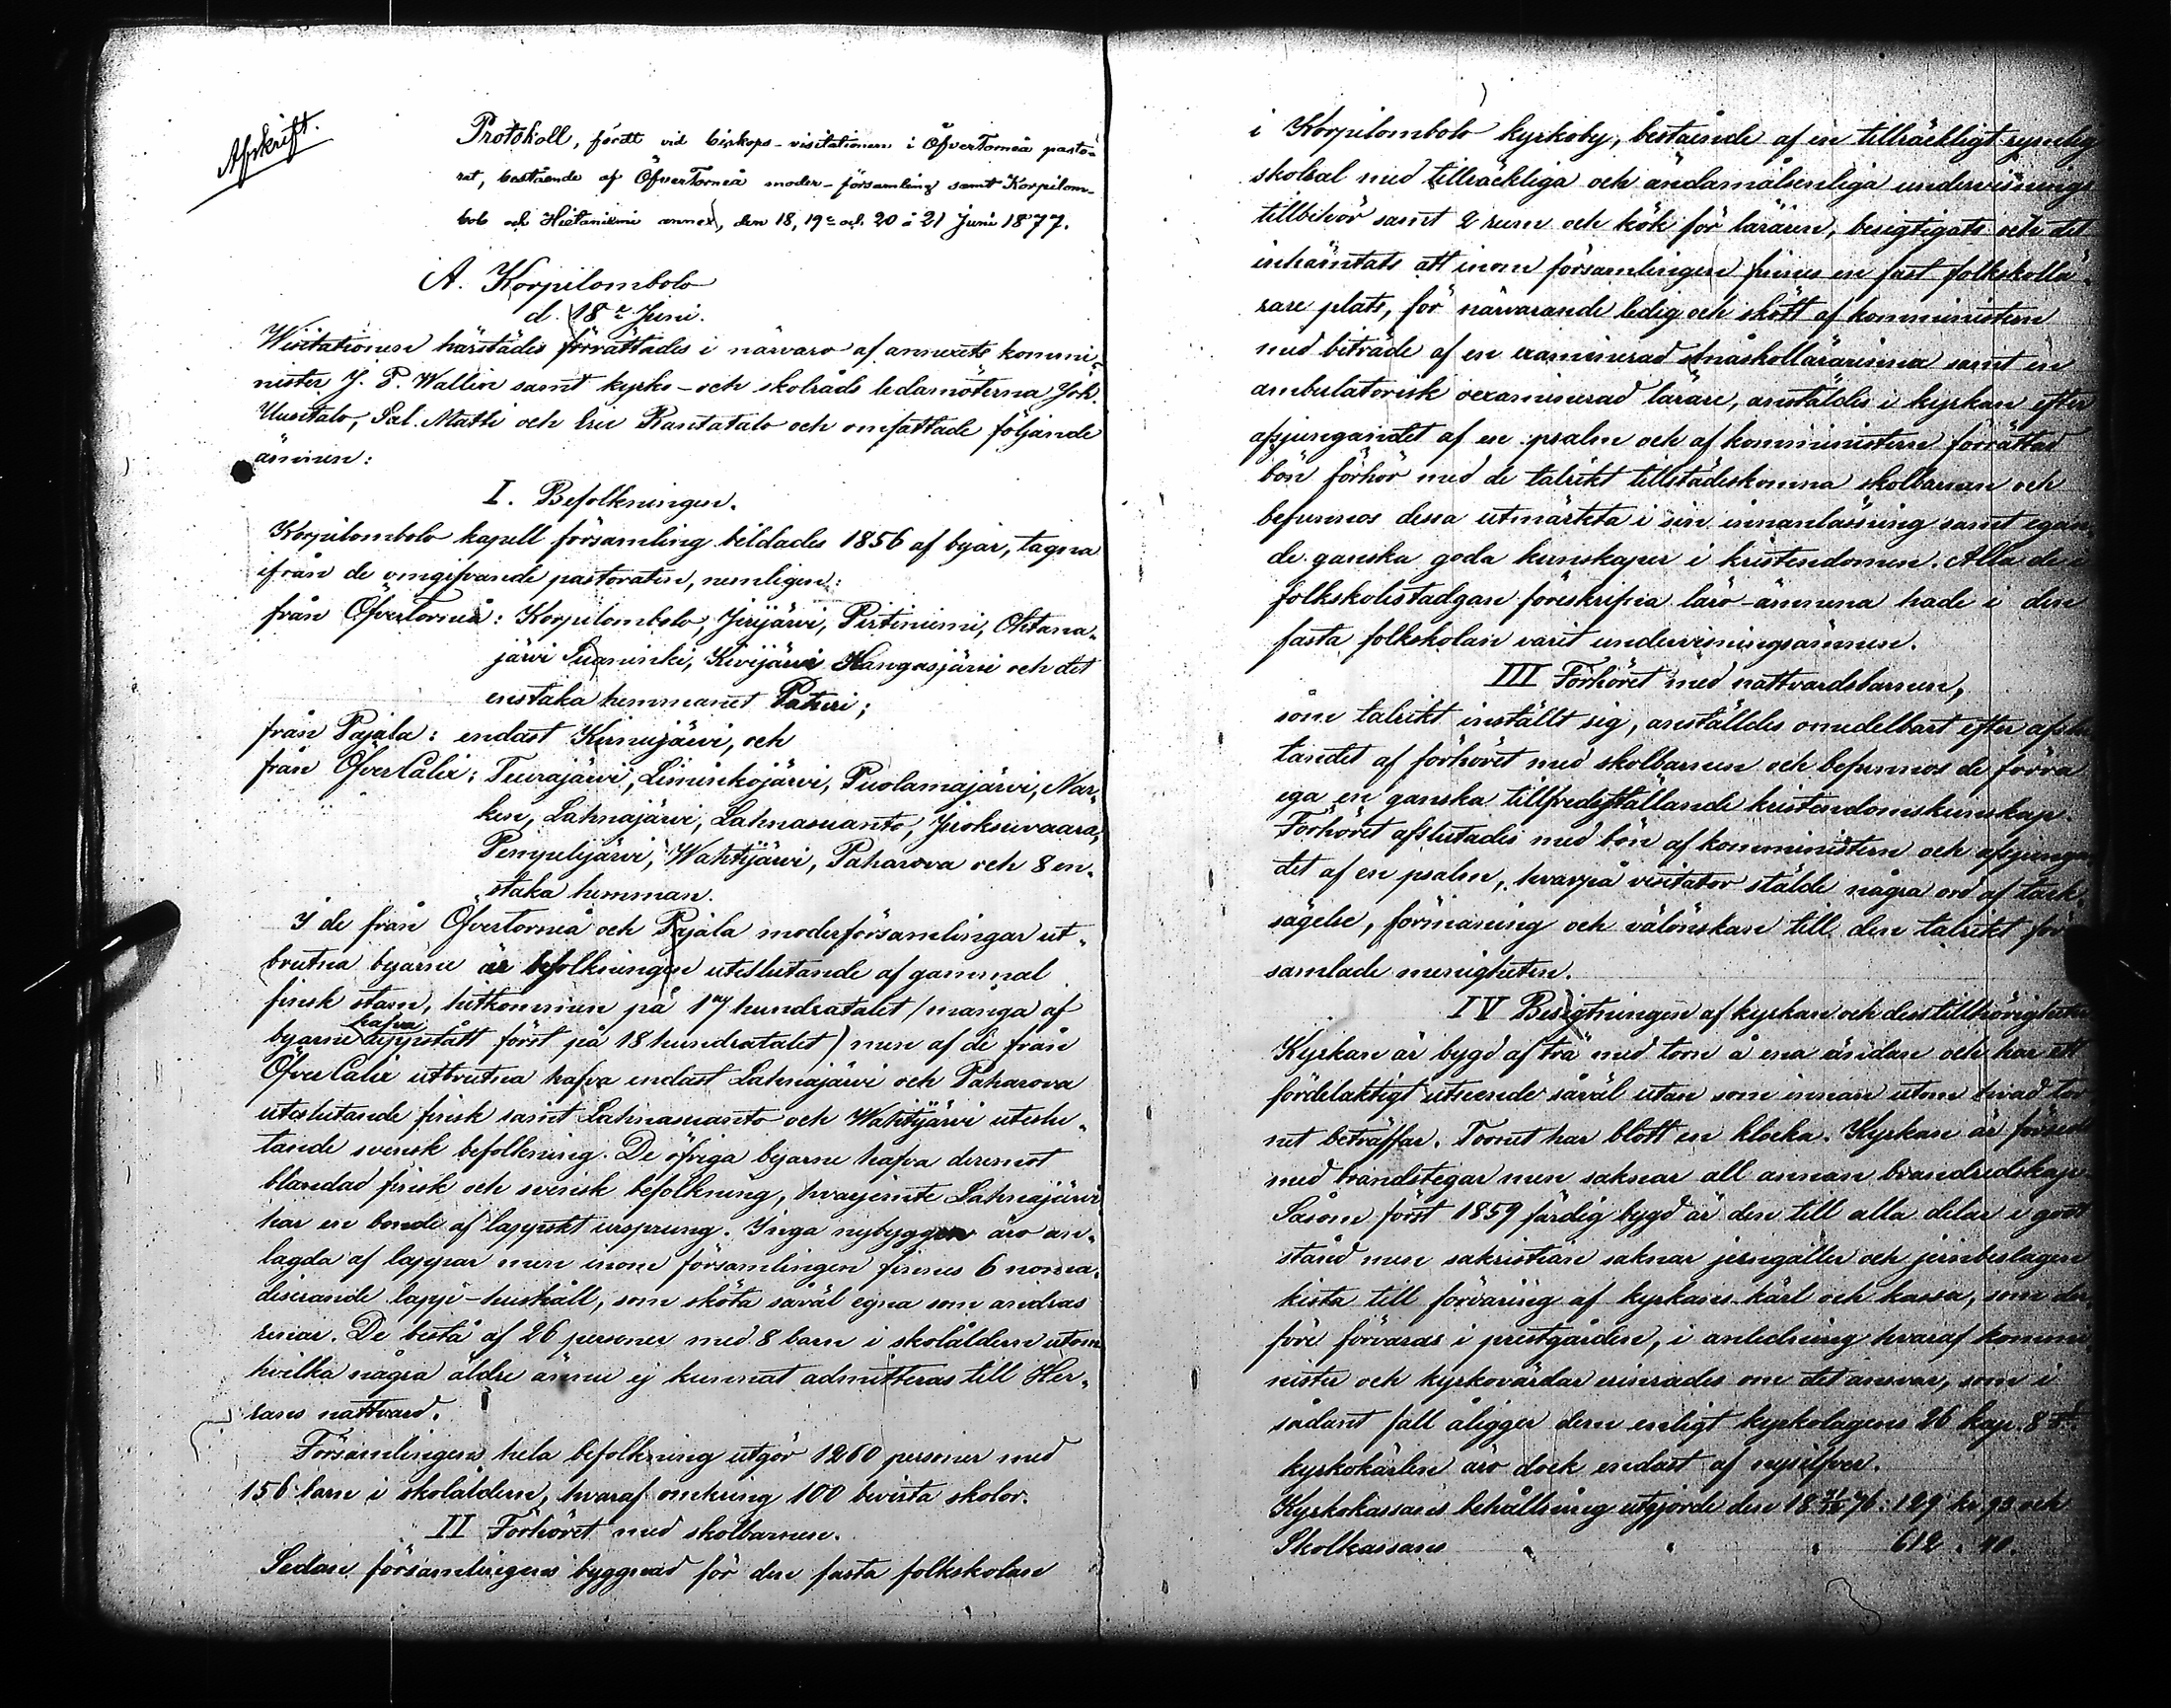 Afskrift.
Protokoll, fördt vid biskops-visitationen i ÖfverTorneå pasto-
rat, bestående af ÖfverTorneå moder-församling samt Korpilom-
bolo och Hietaniemi annex, den 18, 19 och 20 à 21 Juni 1877.
A. Korpilombolo
d. 18e Juni.
Visitationen härstädes förrättades i närvaro af annexets kommi-
nister J. P. Wallin samt kyrko- och skolråds ledamöterna Joh.
Uusitalo, Sal. Matti och Eric Rantatalo och omfattade följande
ämnen:
I. Befolkningen.
Korpilombolo kapell församling bildades 1856 af byar, tagna
ifrån de omgifvande pastoraten, nemligen:
från Öfvertorneå: Korpilombolo, Jirijärvi, Pirtiniemi, Ohtana-
järvi Suaninki, Kivijärvi Kangasjärvi och det
enstaka hemmanet Paturi;
från Pajala: endast Kirnujärvi, och
från Öfver Calix: Teurajärvi, Liminkojärvi, Puolamajärvi, Nar-
ken, Lahnajärvi, Lahnasuanto, Juoksuvaara,
Pempelijärvi, Wahtijärvi, Paharova och 8 en-
staka hemman.
I de från Öfvertorneå och Pajala moderförsamlingar ut-
brutna byarne är befolkningen uteslutande af gammal
finsk stam, hitkommen på 17 hundratalet (många af
byarne hafva uppstått först på 18 hundratalet) men af de från
Öfver Calix utbrutna hafva endast Lahnajärvi och Paharova
uteslutande finsk samt Lahnasuanto och Wahtijärvi uteslu-
tande svensk befolkning. De öfriga byarne hafva deremot
blandad finsk och svensk befolkning, hvarjemte Lahnajärvi
har en bonde af lappskt ursprung. Inga nybyggen äro an-
lagda af lappar men inom församlingen finnes 6 noma-
diserande lapp-hushåll, som sköta såväl egna som andras
renar. De bestå af 26 personer med 8 barn i skolåldern utom
hvilka några äldre ännu ej kunnat admitteras till Her-
rans nattvard.
Församlingens hela befolkning utgör 1260 personer med
156 barn i skolåldern, hvaraf omkring 100 bevista skolor.
II Förhöret med skolbarnen.
Sedan församlingens byggnad för den fasta folkskolan
i Korpilombolo kyrkoby, bestående af en tillräckligt rymlig
skolsal med tillräckliga och ändamålsenliga undervisnings
tillbehör samt 2 rum och kök för läraren, besigtigats och det
inhämtats att inom församlingen finnes en fast folkskollä-
rare plats, för närvarande ledig och skött af komministern
med biträde af en examinerad småskollärarinna samt en
ambulatorisk oexaminerad lärare, anställdes i kyrkan efter
afsjungandet af en psalm och af komministern förrättad
bön förhör med de talrikt tillstädeskomna skolbarnen och
befunnos dessa utmärkta i sin innanläsning samt egan-
de ganska goda kunskaper i kristendomen. Alla de i
folkskolestadgan föreskrifna läro-ämnena hade i den
fasta folkskolan varit undervisningsämnen.
III Förhöret med nattvardsbarnen,
som talrikt inställt sig, anställdes omedelbart efter afslu
tandet af förhöret med skolbarnen och befunnos de förra
ega en ganska tillfredsställande kristendomskunskap.
Förhöret afslutades med bön af komministern och afsjungan
det af en psalm, hvarpå visitator stälde några ord af tack-
sägelse, förmaning och välönskan till den talrikt för
samlade menigheten.
IV Besigtningen af kyrkan och dess tillhörigheter
Kyrkan är bygd af trä med torn å ena ändan och har ett
fördelaktigt utseende såväl utan som innan utom hvad tor
net beträffar. Tornet har blott en klocka. Kyrkan är försedd
med brandstegar men saknar all annan brandredskap.
Såsom först 1859 färdig bygd är den till alla delar i godt
stånd men sakristian saknar jerngaller och jernbeslagen
kista till förvaring af kyrkans kärl och kassa, som der-
före förvaras i prestgården, i anledning hvaraf kommi
nister och kyrkovärdar erinrades om det ansvar, som i
sådant fall åligger dem enligt kyrkolagens 26 kap. 8 §.
kyrkokärlen äro dock endast af nysilfver.
Kyrkokassans behållning utgjorde den 18 31/12 76: 129 kr 93 och
Skolkassans " " " 612 . 10.